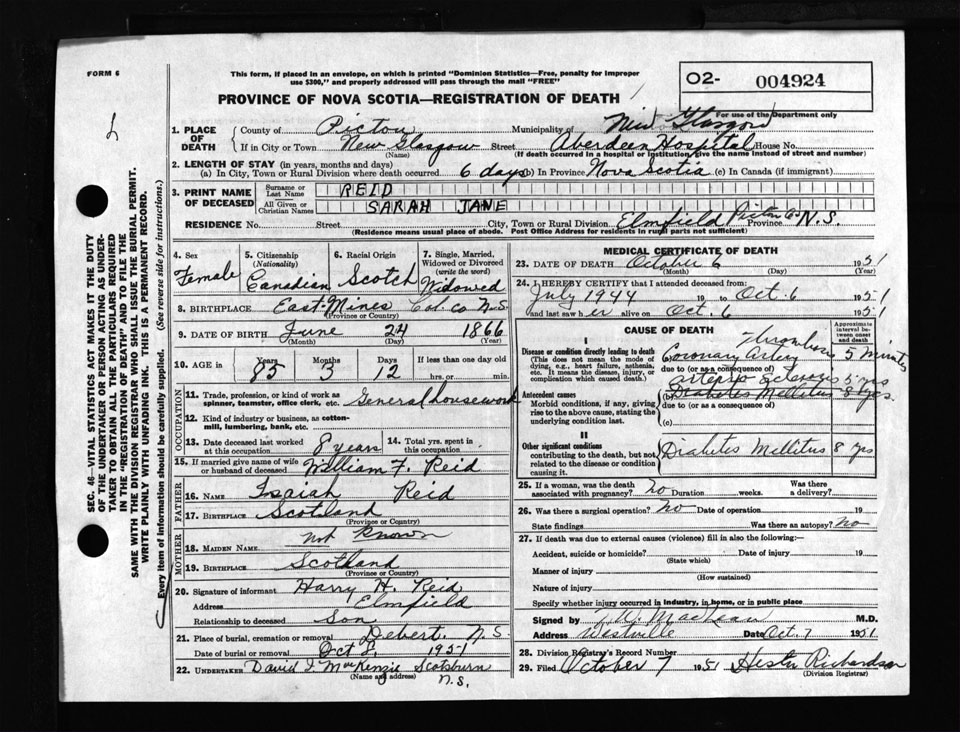 FORM 6
This form, if placed in an envelope, on which is printed "Dominion Statistics—Free, penalty for improper
use $300," and properly addressed will pass through the mail "FREE"
O2- 004924
For use of the Department only
PROVINCE OF NOVA SCOTIA—REGISTRATION OF DEATH
SEC. 46—VITAL STATISTICS ACT MAKES IT THE DUTY
OF THE UNDERTAKER OR PERSON ACTING AS UNDER-
TAKER TO OBTAIN ALL THE PARTICULARS REQUIRED
IN THE "REGISTRATION OF DEATH" AND TO FILE THE
SAME WITH THE DIVISION REGISTRAR WHO SHALL ISSUE THE BURIAL PERMIT.
WRITE PLAINLY WITH UNFADING INK. THIS IS A PERMANENT RECORD.
Every item of information should be carefully supplied. (See reverse side for instructions.)
1. PLACE OF DEATH County of Pictou Municipality of New Glasgow
If in City or Town New Glasgow Street Aberdeen Hospital House No.
(Name) (If death occurred in a hospital or institution, give the name instead of street and number)
2. LENGTH OF STAY (in years, months and days)
(a) In City, Town or Rural Division where death occurred 6 days (b) In Province Nova Scotia (c) In Canada (if immigrant)
3. PRINT NAME OF DECEASED Surname or Last Name REID
All Given or Christian Names SARAH JANE
RESIDENCE No. Street City, Town or Rural Division Elmfield Pictou Co. Province N.S.
(Residence means usual place of abode. Post Office Address for residents in rural parts not sufficient)
4. Sex Female
5. Citizenship (Nationality) Canadian
6. Racial Origin Scotch
7. Single, Married, Widowed or Divorced (write the word) Widowed
8. BIRTHPLACE East Mines Col. Co N.S.
(Province or Country)
9. DATE OF BIRTH June 24 1866
(Month) (Day) (Year)
10. AGE Years 85 Months 3 Days 12 If less than one day old hrs. or min.
OCCUPATION
11. Trade, profession, or kind of work as spinner, teamster, office clerk, etc. General housework
12. Kind of industry or business, as cotton-mill, lumbering, bank, etc.
13. Date deceased last worked at this occupation 8 years
14. Total yrs. spent in this occupation
15. If married give name of wife or husband of deceased William F. Reid
FATHER
16. Name Isaiah Reid
17. Birthplace Scotland
(Province or Country)
MOTHER
18. Maiden Name not known
19. Birthplace Scotland
(Province or Country)
20. Signature of informant Harry H. Reid
Address Elmfield
Relationship to deceased Son
21. Place of burial, cremation or removal Debert, N.S.
Date of burial or removal Oct 8, 1951
22. UNDERTAKER David J. MacKenzie Scotsburn N.S.
(Name and address)
MEDICAL CERTIFICATE OF DEATH
23. DATE OF DEATH October 6 1951
(Month) (Day) (Year)
24. I HEREBY CERTIFY that I attended deceased from:
July 1944 19 to Oct. 6 1951
and last saw her alive on Oct. 6 1951
CAUSE OF DEATH
Approximate interval between onset and death
I
Disease or condition directly leading to death
(This does not mean the mode of dying, e.g., heart failure, asthenia, etc. It means the disease, injury, or complication which caused death.)
Coronary Artery Thrombosis 5 minutes
due to (or as a consequence of)
Arterio Sclerosis 5 yrs
Antecedent causes
Morbid conditions, if any, giving rise to the above cause, stating the underlying condition last.
(b) Diabetes Mellitus 8 yrs.
due to (or as a consequence of)
(c)
II
Other significant conditions
contributing to the death, but not related to the disease or condition causing it
Diabetes Mellitus 8 yrs
25. If a woman, was the death associated with pregnancy? no Duration weeks. Was there a delivery?
26. Was there a surgical operation? no Date of operation 19
State findings Was there an autopsy? No
27. If death was due to external causes (violence) fill in also the following:—
Accident, suicide or homicide? Date of injury 19
(State which)
Manner of injury
(How sustained)
Nature of injury
Specify whether injury occurred in industry, in home, or in public place
Signed by MacLean M.D.
Address Westville Date Oct. 7 1951
28. Division Registry's Record Number
29. Filed October 7 1951 Hester Richardson
(Division Registrar)